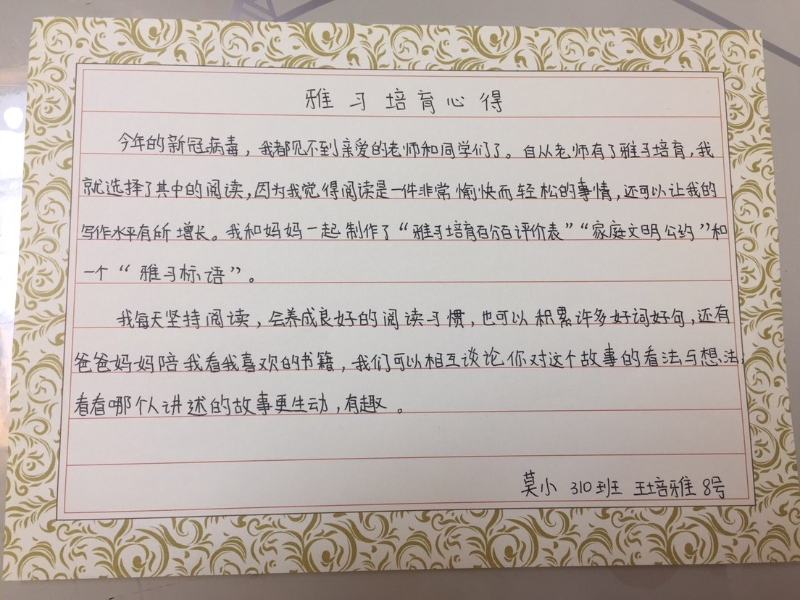 雅习培育心得
今年的新冠病毒，我都见不到亲爱的老师和同学们了。自从老师有了雅习培育，我
就选择了其中的阅读，因为我觉得阅读是一件非常愉快而轻松的事情，还可以让我的
写作水平有所增长。我和妈妈一起制作了“雅习培育百分百评价表”“家庭文明公约”和
一个“雅习标语”。
我每天坚持阅读，会养成良好的阅读习惯，也可以积累许多好词好句，还有
爸爸妈妈陪我看我喜欢的书籍，我们可以相互谈论你对这个故事的看法与想法，
看看哪个人讲述的故事更生动，有趣。
莫小 310班 王培雅 8号